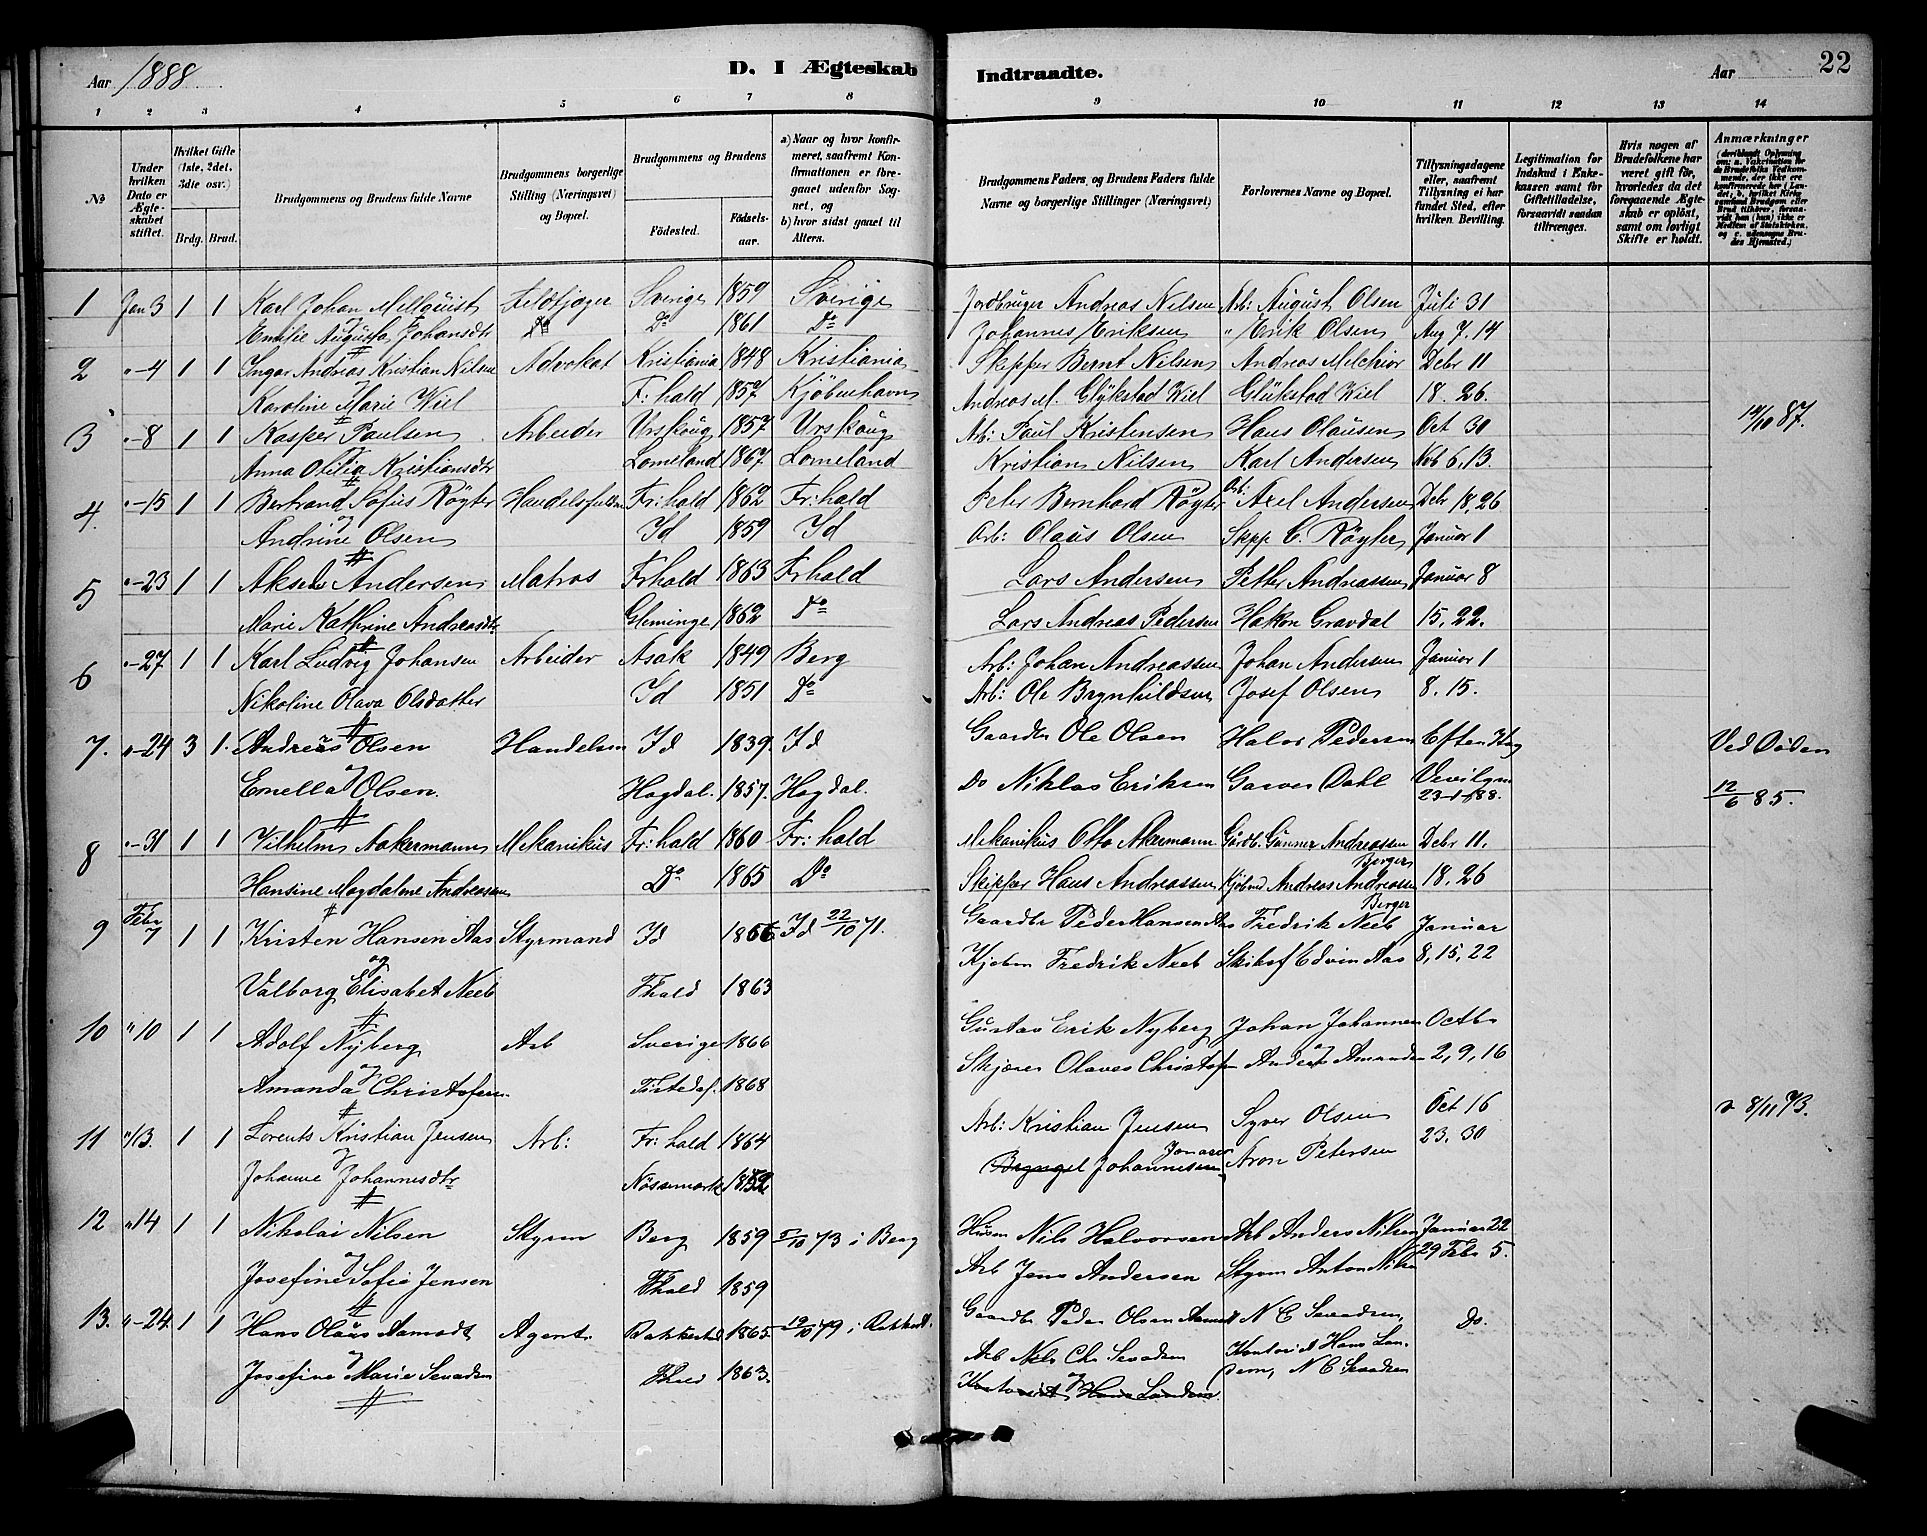 Aar 1888
D. I Ægteskab
Indtraadte.
Aar
22
1 2 3 4 5 6 7 8 9 10 11 12 13 14
№
Under hvilken Dato er Ægteskabet stiftet.
Hvilket Gifte (1ste, 2det, 3die osv.)
Brdg. Brud.
Brudgommens og Brudens fulde Navne
Brudgommens borgerlige Stilling (Næringsvei) og Bopæl.
Brudgommens og Brudens
Födested.
Födselsaar.
a) Naar og hvor konfirmeret, saafremt Konfirmationen er foregaaet udenfor Sognet, og
b) hvor sidst gaaet til Alters.
Brudgommens Faders, og Brudens Faders fulde Navne og borgerlige Stillinger (Næringsvei)
Forlovernes Navne og Bopæl.
Tillysningsdagene eller, saafremt Tillysning ei har fundet Sted, efter hvilken Bevilling.
Legitimation for Indskud i Enkekassen samt for Giftetilladelse, forsaavidt saadan tiltrænges.
Hvis nogen af Brudefolkene har været gift för, hvorledes da det foregaaende Ægteskab er oplöst, samt om lovligt Skifte er holdt.
Anmærkninger
1 Jan 3 1 1 Karl Johan Mellquist Feldtjæger Sverige 1859 Sverige Jordbruger Andreas Nilsen Arb: August Olsen Juli 31
og
Emilie Augusta Johansdtr Do Do 1861 Do Johannes Eriksen " Erik Olsen Aug 7. 14
2 "-4 1 1 Ingar Andreas Kristian Nilsen Advokat Kristiania 1848 Kristiania Skipper Bernt Nilsen Andreas Melchior Debr 11
og
Karoline Marie Wiel F: hald 1857 Kjöbenhavn Andreas M. Glükstad Wiel Glükstad Wiel 18. 26.
3 "-8 1 1 Kasper Paulsen Arbeider Urskoug 1857 Urskoug Arb: Paul Kristensen Hans Olausen Oct 30 14/10 87.
Anna Otilia Kristiansdtr Lomeland 1867 Lomeland Kristian Nilsen Karl Andersen Nob 6, 13.
4 "-15 1 1 Bertrand Sofus Röyter Fr: hald 1862 Fr: hald Peter Bernhard Röyter Arb: Axel Andersen Debr 18, 26
og
Andrine Olsen Id 1859 Id Arb: Olaus Olsen Skpp. C. Röyter Januar 1
5 "-23 1 1 Aksel Andersen Matros Frhald 1863 Frhald Lars Andersen Petter Andreassen Januar 8
Marie Kathrine Andreasdtr Gleminge 1862 Do Lars Andreas Pedersen Hakon Gravdal 15, 22.
6 "-27 1 1 Karl Ludvig Johansen Arbeider Asak 1849 Berg Arb: Johan Andreassen Johan Andersen Januar 1
Nikoline Olava Olsdatter Id 1851 Do Arb: Ole Brynhildsen Josef Olsen 8. 15.
7. "-24 3 1. Andreas Olsen Handelsm Id 1839. Id Gaardbr Ole Olsen Halvor Pedersen Ved Döden
og
Emella Olsen. Hogdal. 1857. Hogdal. Do Niklas Eriksen Garver Dahl 23-1-88. 12/6 85.
8 "-31 1 1 Vilhelm Aakermann Mekanikus Fr: hald 1860 Fr: hald Mekanikus Otto Akermann Gunner Andreassen Berger Debr 11.
Hansine Magdalene Andreassen Do 1865 Do Skipper Hans Andreassen Andreas Andreassen Berger 18. 26
9 Febr 7 1 1 Kristen Hansen Aas Styrmand Id 1856 Id 22/10 71. Gaardbr Peder Hansen Aas Fredrik Neeb Januar
og
Valborg Elisabet Neeb Fhald 1863 Kjøbm Fredrik Neeb Skibsf Edvin Aas 8, 15, 22
10 " 10 1 1 Adolf Nyberg Arb Sverige 1866 Gustav Erik Nyberg Johan Johannes Octb
og
Amanda Christofersen Tistedal. 1868 Skjærer Olaves Christofersen 2, 9, 16
11 " 13. 1 1 Lorents Kristian Jensen Arb: Fr: hald 1864 Arb: Kristian Jensen Syver Olsen Oct 16 8/11 93.
og
Johanne Johannesdtr Nössemark 1852 Johannesen Aron Petersen 23. 30
12 " 14 1 1 Nikolai Nilsen Styrm Berg 1859 5/10 73 i Berg Husm Nils Halvorsen Arb Anders Nilsen Januar 22
og
Josefine Sofie Jensen Fhald 1859 Arb Jens Andersen Styrm Anton Nilsen 29 Febr 5.
13. "-24. 1 1 Hans Olaus Aamodt Agent. Bakkestad 1865. 19/10 79 i Gaardbr Peder Olsen Aamodt N C Sevadsen, Do.
og
Josefine Marie Sevadsen Fhald 1863. Arb Nils Chr Sevadsen Hans Lan-
dem, N C Sevadsen